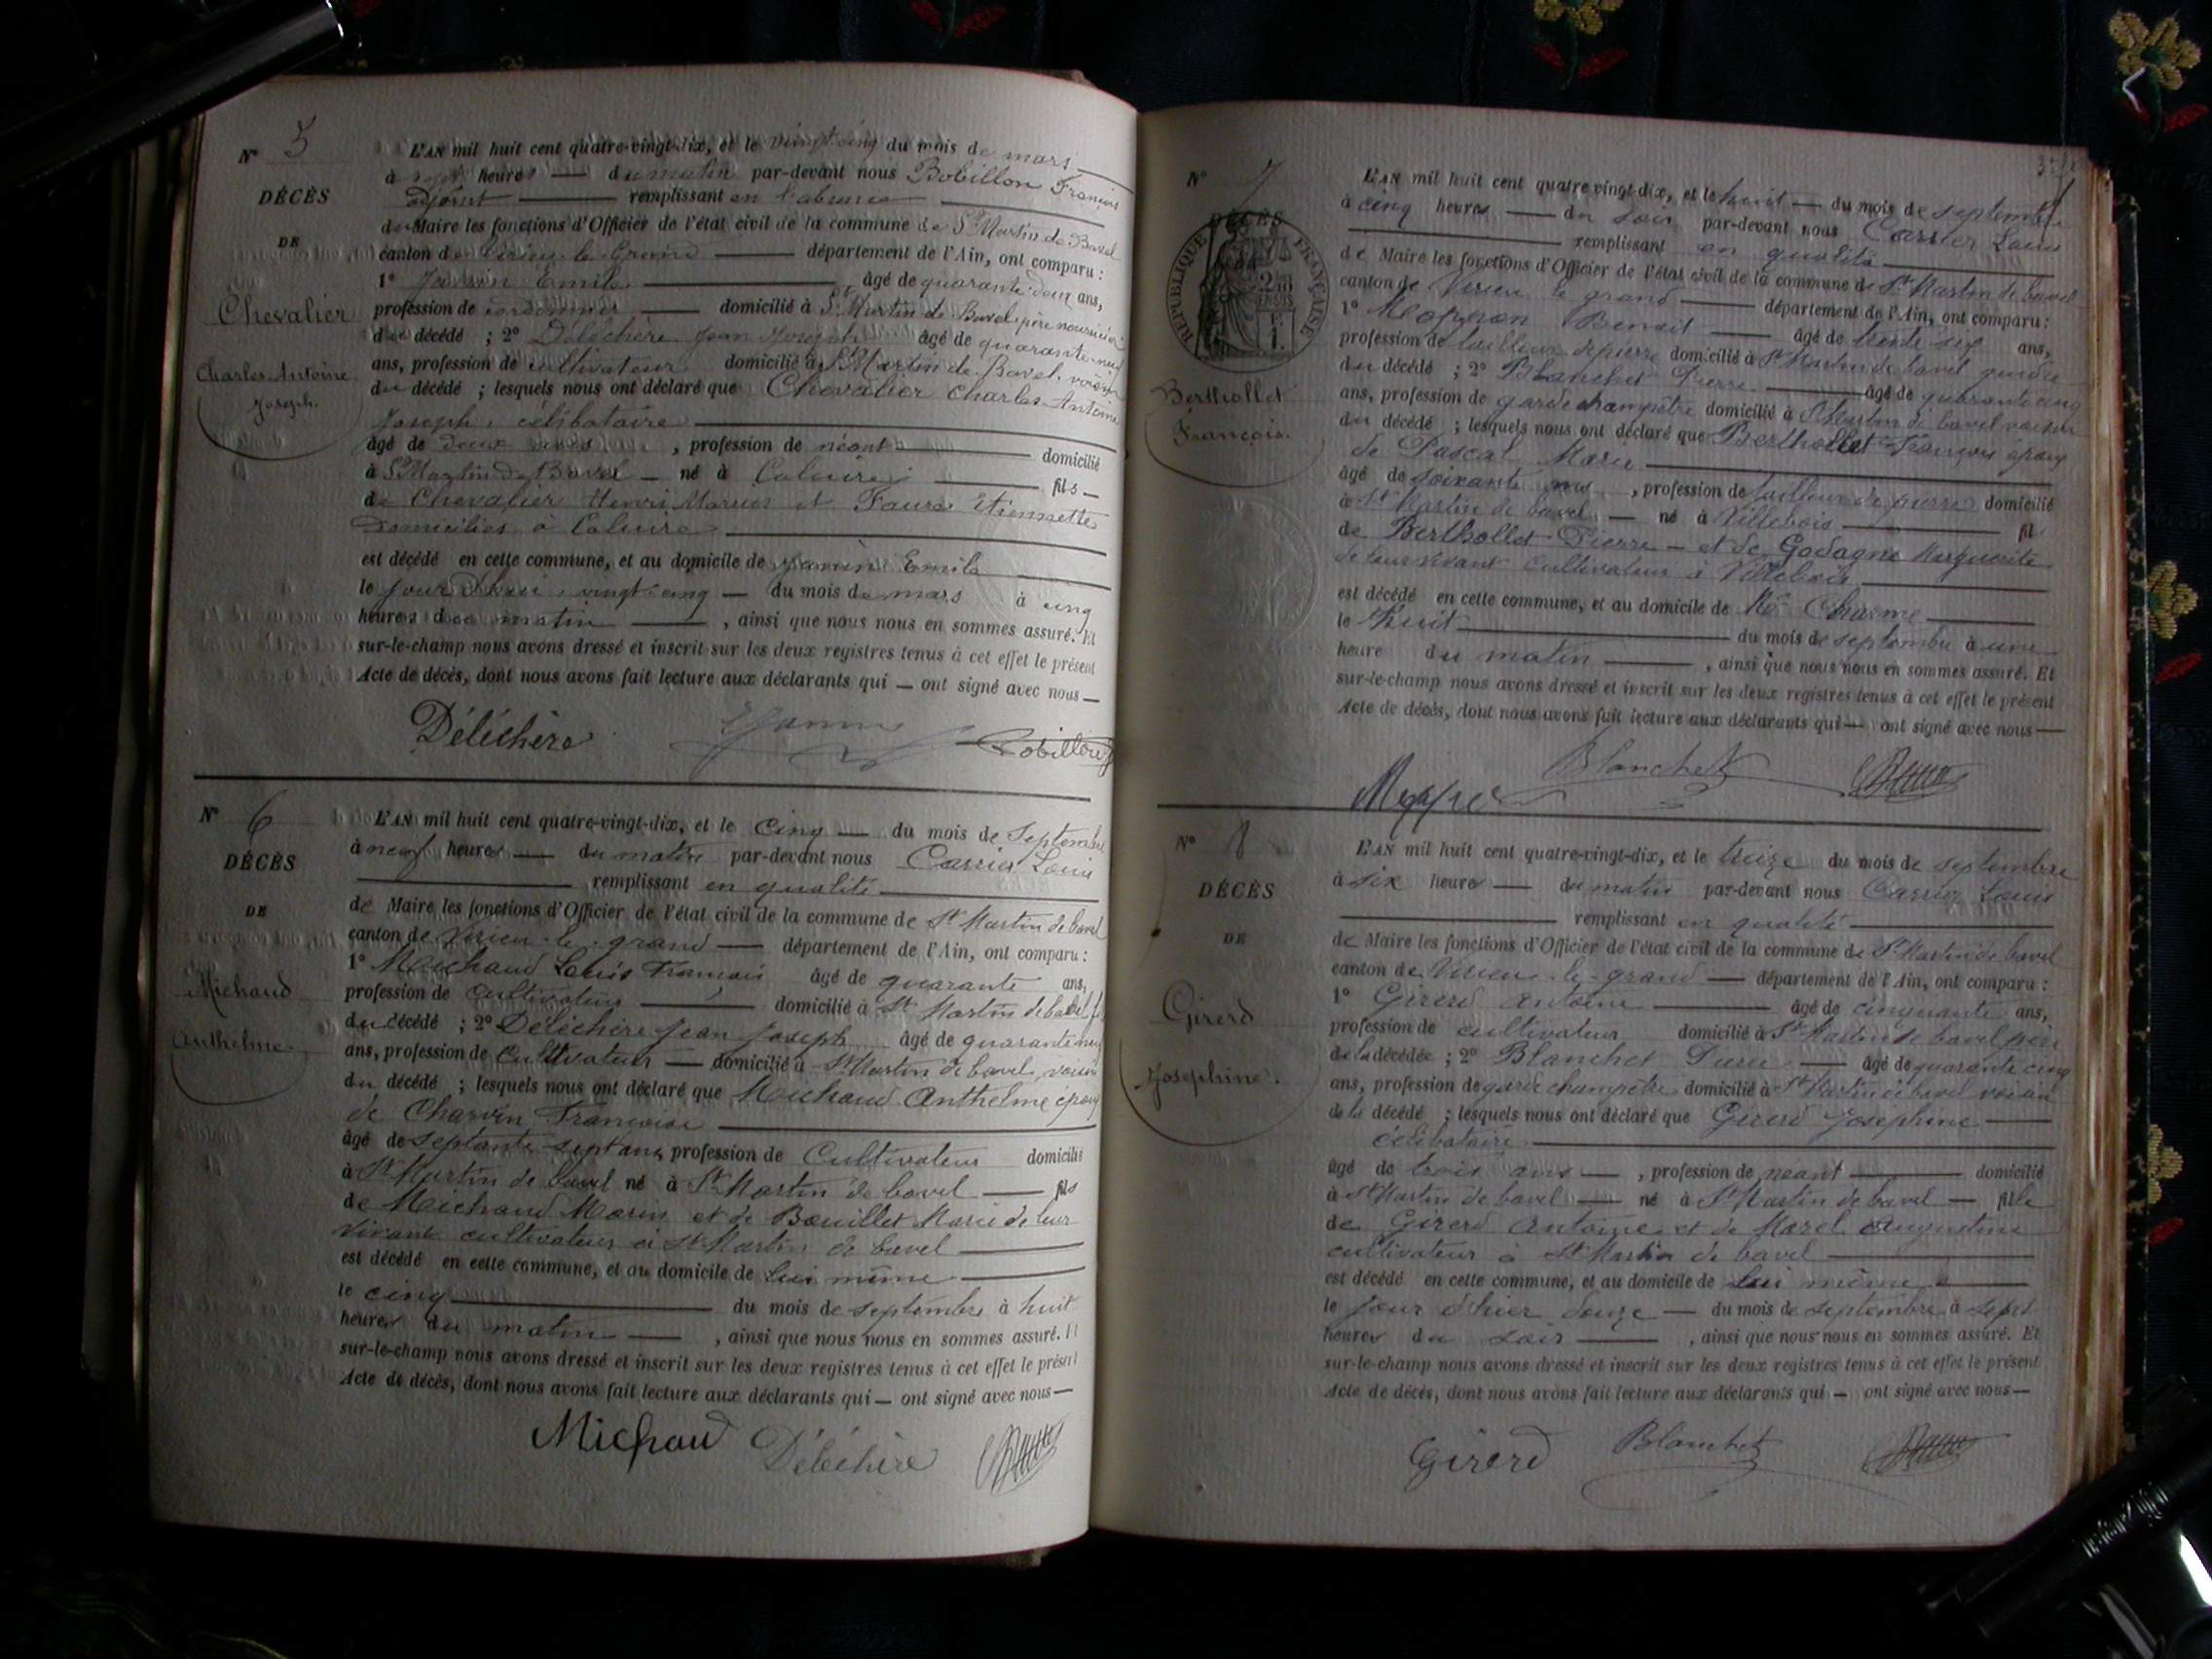 N° 5
DÉCÈS
DE
Chevalier
Charles Antoine
Joseph.
L'AN mil huit cent quatre-vingt-dix, et le vingt cinq du mois de mars
à sept heures du matin par-devant nous Bobillon François
adjoint remplissant en l'absence
du Maire les fonctions d'Officier de l'état civil de la commune de St Martin de Bavel
canton de Virieu le Grand département de l'Ain, ont comparu :
1° Janin Emile âgé de quarante deux ans,
profession de cordonnier domicilié à St Martin de Bavel père nourricier
du décédé ; 2° Déléchère Jean Joseph âgé de quarante neuf
ans, profession de cultivateur domicilié à St Martin de Bavel, voisin
du décédé ; lesquels nous ont déclaré que Chevalier Charles Antoine
Joseph, célibataire
âgé de deux , profession de néant domicilié
à St Martin de Bavel né à Caluire fils
de Chevalier Henri Marius et Faure Etiennette
domiciliés à Caluire
est décédé en cette commune, et au domicile de Janin Emile
le jour d'hui vingt cinq du mois de mars à cinq
heures du matin , ainsi que nous nous en sommes assuré. Et
sur-le-champ nous avons dressé et inscrit sur les deux registres tenus à cet effet le présent
Acte de décès, dont nous avons fait lecture aux déclarants qui ont signé avec nous
Déléchère Janin Bobillon
N° 6
DÉCÈS
DE
Michaud
Anthelme
L'AN mil huit cent quatre-vingt-dix, et le cinq du mois de Septembre
à neuf heures du matin par-devant nous Carrier Louis
remplissant en qualité
de Maire les fonctions d'Officier de l'état civil de la commune de St Martin de bavel
canton de Virieu-le-grand département de l'Ain, ont comparu :
1° Michaud Louis François âgé de quarante ans,
profession de cultivateur domicilié à St Martin de bavel
du décédé ; 2° Déléchère Jean Joseph âgé de quarante neuf
ans, profession de Cultivateur domicilié à St Martin de bavel, voisin
du décédé ; lesquels nous ont déclaré que Michaud Anthelme époux
de Charvin Françoise
âgé de septante-sept ans, profession de Cultivateur domicilié
à St Martin de bavel né à St Martin de bavel fils
de Michaud Marin et de Bouillet Marie de leur
vivant cultivateur à St Martin de bavel
est décédé en cette commune, et au domicile de Lui même
le cinq du mois de septembre à huit
heures du matin , ainsi que nous nous en sommes assuré.
sur-le-champ nous avons dressé et inscrit sur les deux registres tenus à cet effet le présent
Acte de décès, dont nous avons fait lecture aux déclarants qui ont signé avec nous
Michaud Déléchère
N° 7
DÉCÈS
RÉPUBLIQUE FRANÇAISE
Berthollet
François.
L'AN mil huit cent quatre-vingt-dix, et le huit du mois de septembre
à cinq heures du soir par-devant nous Carrier Louis
remplissant en qualité
de Maire les fonctions d'Officier de l'état civil de la commune de St Martin de bavel
canton de Virieu le grand département de l'Ain, ont comparu :
1° Benoit âgé de trente six ans,
profession de tailleur de pierre domicilié à St Martin de bavel gendre
du décédé ; 2° Blanchet Pierre âgé de quarante cinq
ans, profession de garde champêtre domicilié à St Martin de bavel voisin
du décédé ; lesquels nous ont déclaré que Berthollet François époux
de Pascal Marie
âgé de soixante , profession de tailleur de pierre domicilié
à St Martin de bavel né à Villebois fil
de Berthollet Pierre et de Godagne Marguerite
de leur vivant Cultivateur à Villebois
est décédé en cette commune, et au domicile de Charme
le huit du mois de septembre à une
heure du matin , ainsi que nous nous en sommes assuré. Et
sur-le-champ nous avons dressé et inscrit sur les deux registres tenus à cet effet le présent
Acte de décès, dont nous avons fait lecture aux déclarants qui ont signé avec nous
Blanchet
N° 8
DÉCÈS
DE
Girerd
Josephine.
L'AN mil huit cent quatre-vingt-dix, et le treize du mois de septembre
à six heures du matin par-devant nous Carrier Louis
remplissant en qualité
de Maire les fonctions d'Officier de l'état civil de la commune de St Martin de bavel
canton de Virieu-le-grand département de l'Ain, ont comparu :
1° Girerd Antoine âgé de cinquante ans,
profession de cultivateur domicilié à St Martin de bavel père
de la décédée ; 2° Blanchet Pierre âgé de quarante cinq
ans, profession de garde champêtre domicilié à St Martin de bavel voisin
de la décédé ; lesquels nous ont déclaré que Girerd Josephine
célibataire
âgé de trois ans , profession de néant domicilié
à St Martin de bavel né à St Martin de bavel fille
de Girerd Antoine et de Morel Augustine
cultivateur à St Martin de bavel
est décédé en cette commune, et au domicile de Lui même
le jour d'hier douze du mois de septembre à sept
heures du soir , ainsi que nous nous en sommes assuré. Et
sur-le-champ nous avons dressé et inscrit sur les deux registres tenus à cet effet le présent
Acte de décès, dont nous avons fait lecture aux déclarants qui ont signé avec nous
Girerd Blanchet